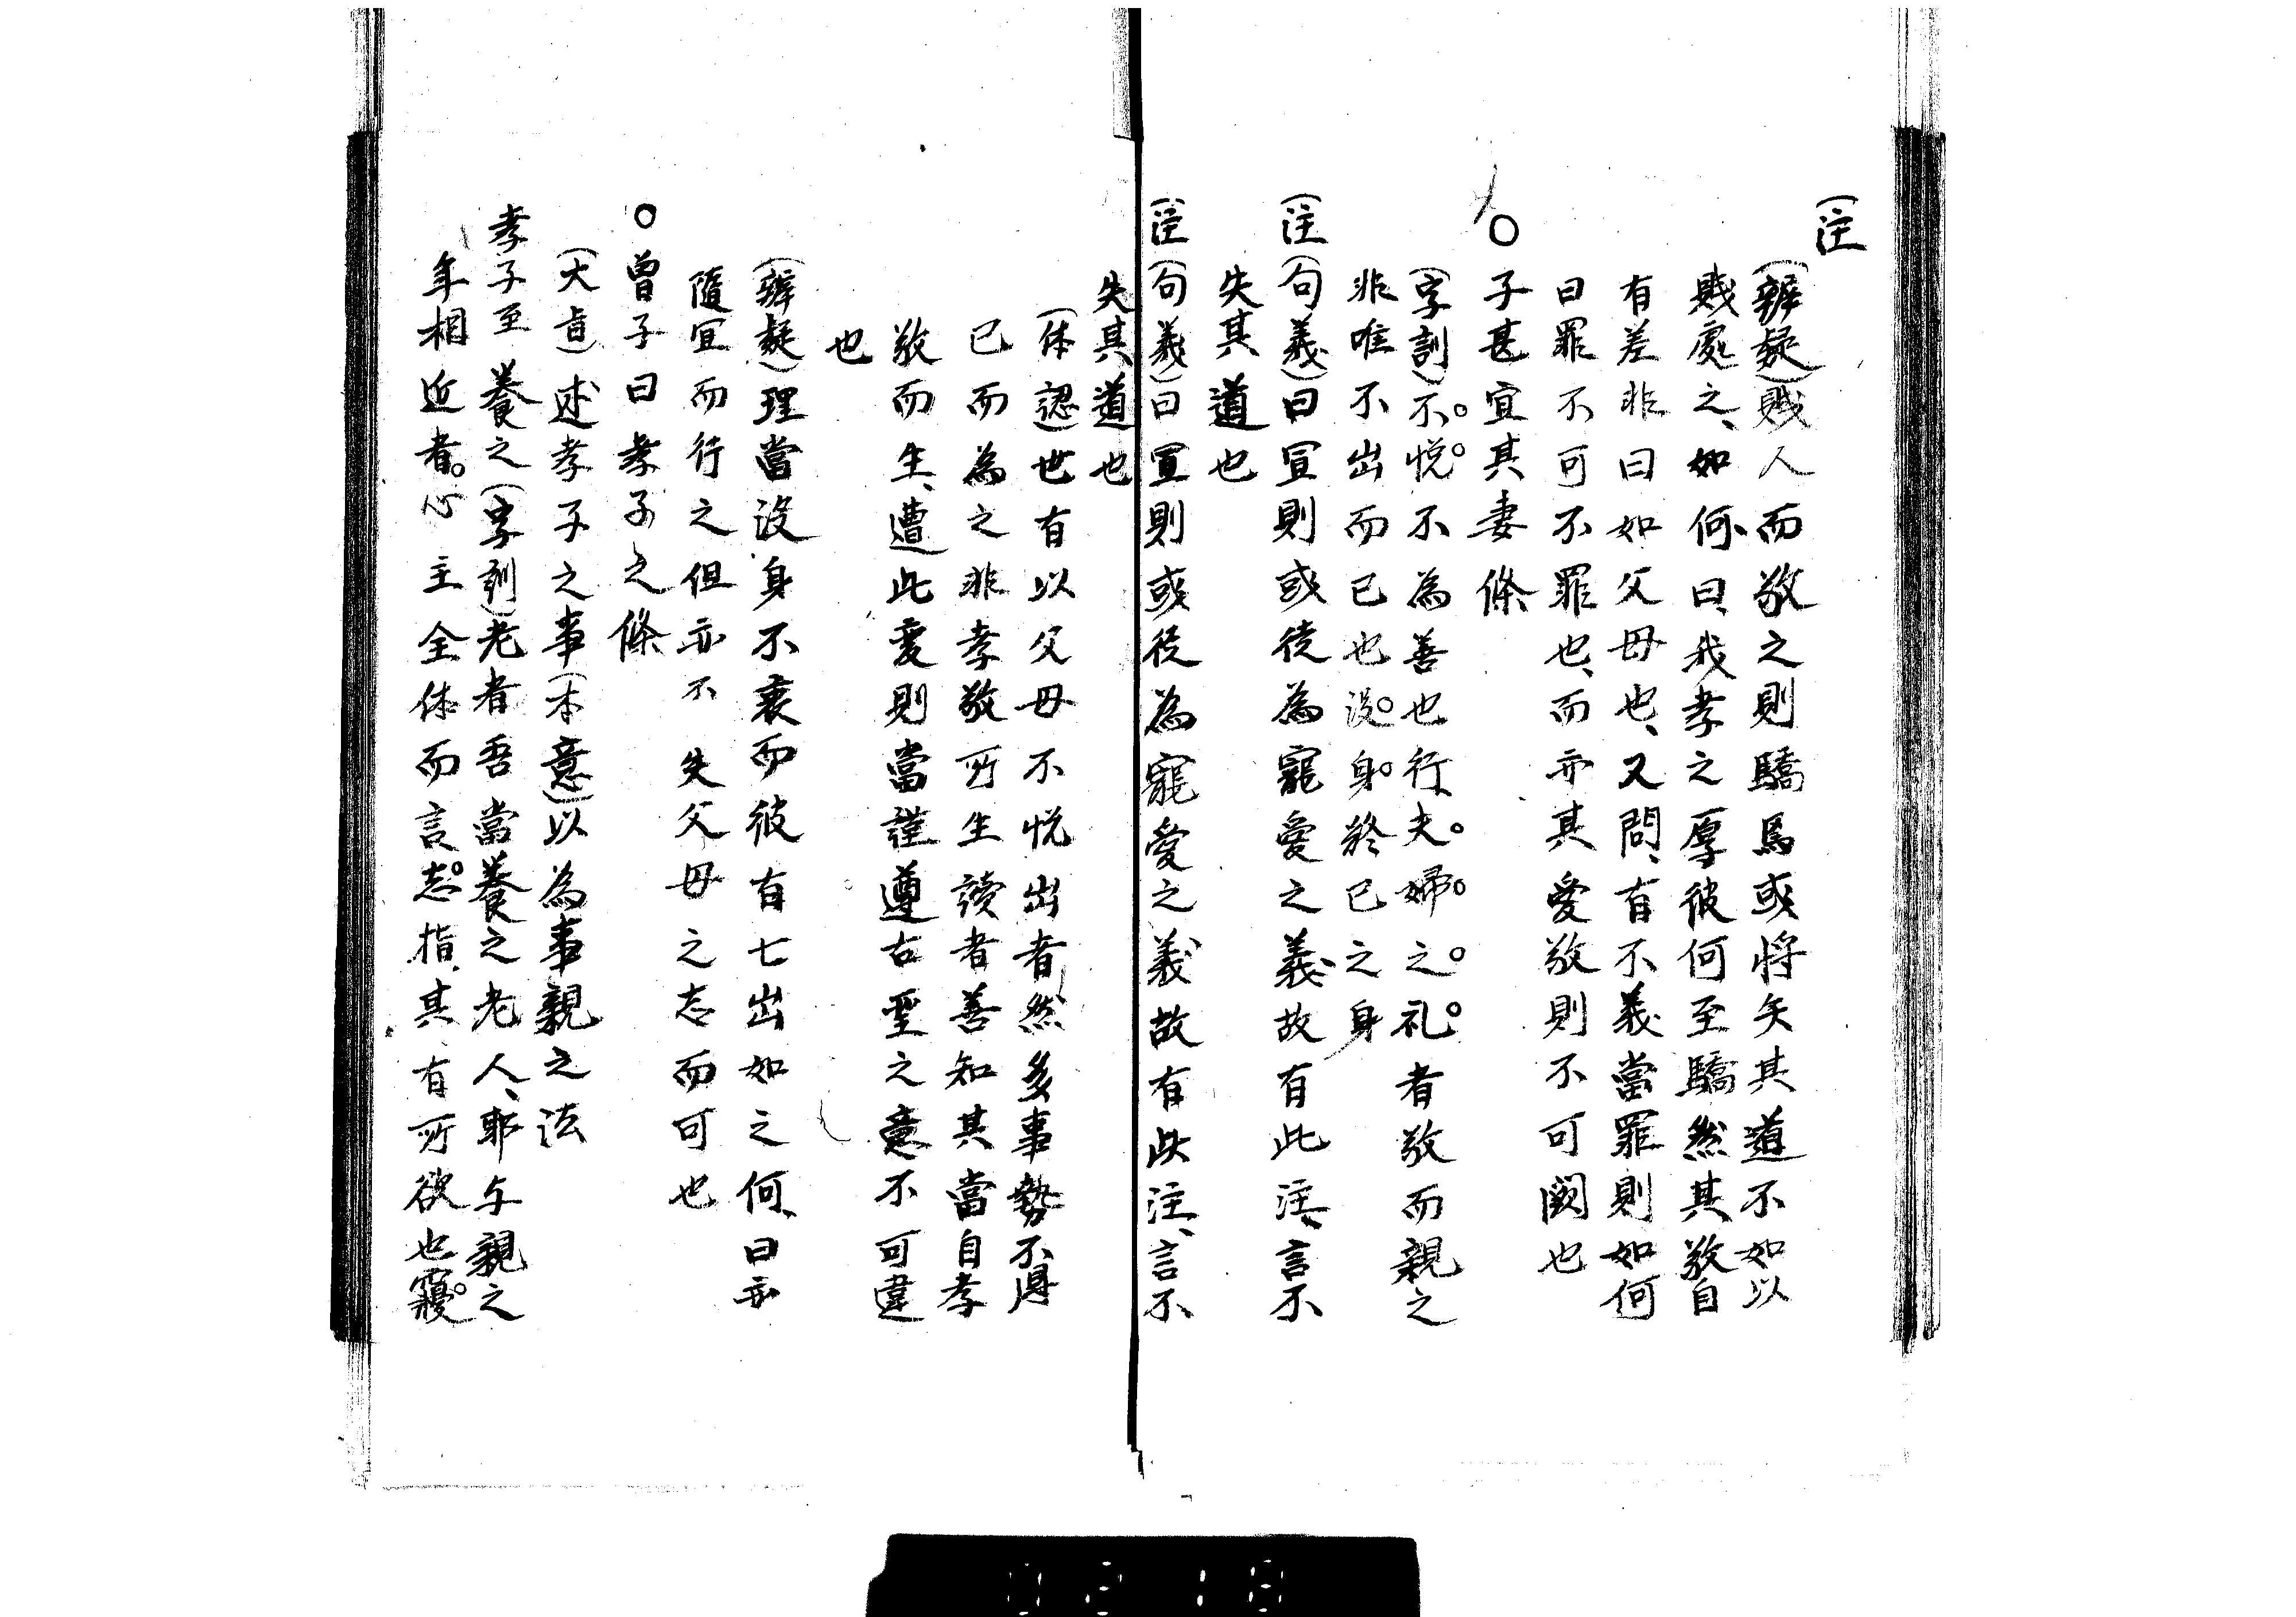 (註
(辨疑)賎人而敬之則驕焉或将失其道不如以
賎處之、如何、曰、我孝之厚彼何至驕然其敬自
有差非曰如父母也、又問、有不義當罪則如何
曰罪不可不罪也、而亦其愛敬則不可闕也
〇子甚宜其妻條
(字訓)不悦不為善也行夫婦之礼者敬而親之
非唯不出而已也没身終己之身
(註(句義)曰宜則或徒為寵愛之義故有此注、言不
失其道也
(註(句義)曰宜則或徒為寵愛之義故有此注、言不
失其道也
(体認世有以父母不悦出者然多事勢不得
已而為之非孝敬所生讀者善知其當自孝
敬而生、遭此変則當謹遵古聖之意不可違
也
(辨疑)理當没身不衰而彼有七出如之何、曰亦
隨宜而行之但亦不失父母之志而可也
〇曽子曰孝子之條
(大㫖)述孝子之事(本意)以為事親之法
孝子至養之(字訓)老者吾當養之老人、耶与親之
年相近者心主全体而言志指其有所欲也寢